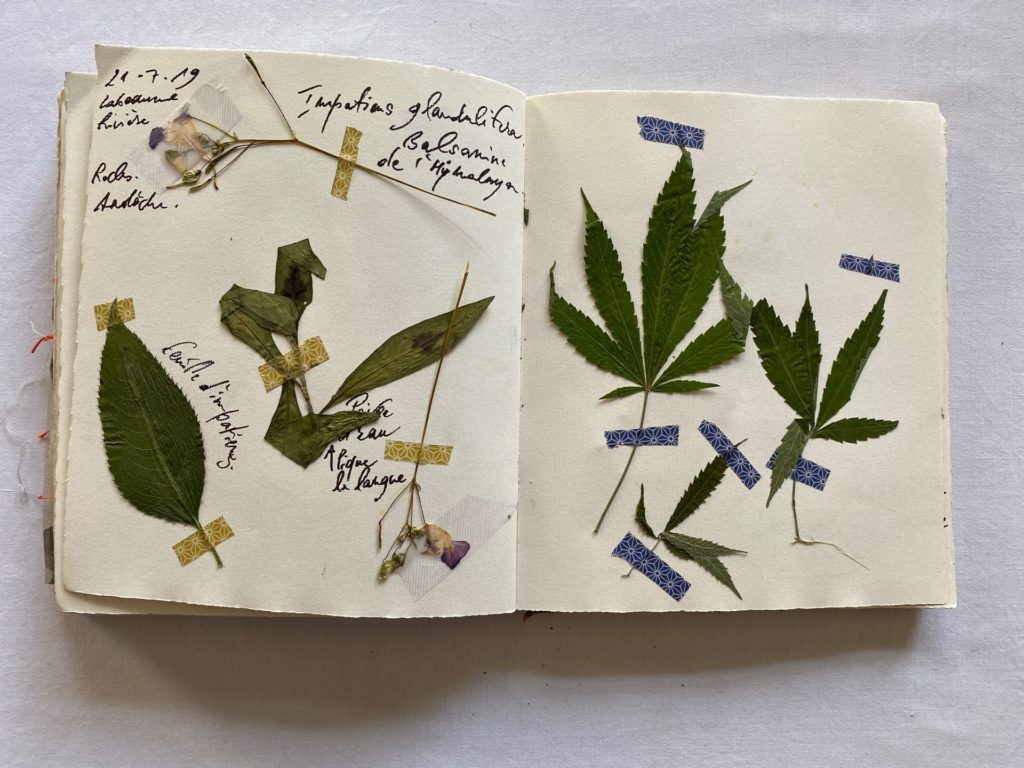 21-7-19
Labeaume
Rivière
Roches.
Ardèche.
Impatiens glandulifera.
Balsamine
de l'Hymalaya.
feuille d'impatiens.
Poivre
d'eau
↑ pique
la langue